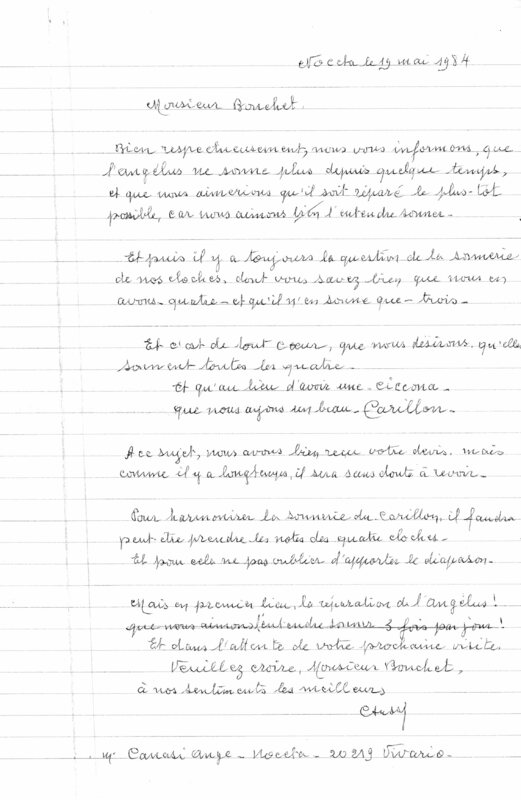 Noceta le 19 mai 1984
Monsieur Bouchet.
Bien respectueusement, nous vous informons, que
l'angélus ne sonne plus depuis quelque temps,
et que nous aimerions qu'il soit réparé le plus-tot
possible, car nous aimons bien l'entendre sonner.
Et puis il y a toujours la question de la sonnerie
de nos cloches. dont vous savez bien que nous en
avons-quatre-et qu'il n'en sonne que-trois-
Et c'est de tout cœur, que nous désirons. qu'elles
sonnent toutes les quatre-
Et qu'au lieu d'avoir une-ciccona-
que nous ayons un beau-Carillon-
A ce sujet, nous avons bien reçu votre devis. mais
comme il y a longtemps, il sera sans doute à revoir-
Pour harmoniser la sonnerie du Carillon, il faudra
peut-être prendre les notes des quatre cloches-
Et pour cela ne pas oublier d'apporter le diapason-
Mais en premier lieu, la réparation de l'Angélus!
que nous aimons entendre sonner 3 fois par jour!
Et dans l'attente de votre prochaine visite.
Veuillez croire, Monsieur Bouchet,
à nos sentiments les meilleurs
Mr Canasi Ange-Noceta-20219 Vivario-